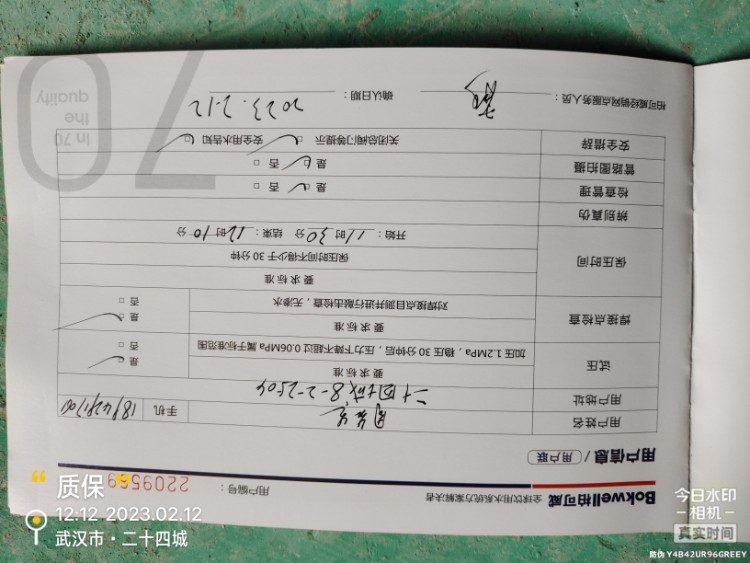 Bokwell柏可威 全球饮用水系统方案解决者
用户编号： 2209569
用户信息 / 用户联
用户姓名
手机
用户地址 二十四城 8-2-2504
试压
要求标准
加压1.2MPa，稳压30分钟后，压力下降不超过0.06MPa属于标准范围
是 □
否 □
焊接点检查
要求标准
对焊接点目测并进行敲击检查，无渗水
是 □
否 □
保压时间
要求标准
保压时间不得少于30分钟
开始：11时30分 结束：12时10分
辨别真伪
检查管理 是 □ 否 □
管路图拍摄 是 □ 否 □
安全措辞 关闭总阀门等提示 □ 安全用水告知 □
柏可威经销网点服务人员：
确认日期： 2023.2.12
In 70
the
quality
70
质保
12:12 2023.02.12
武汉市·二十四城
今日水印
相机
真实时间
防伪 Y4B42UR96GREEY